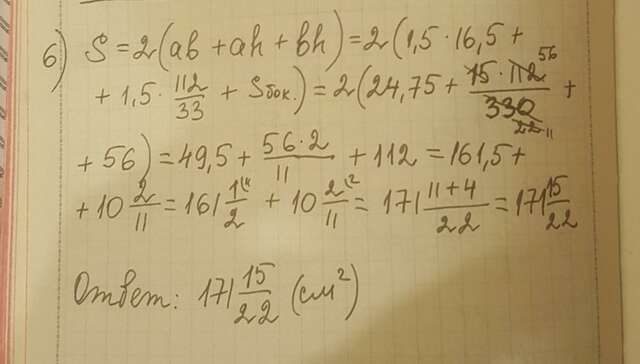 б) S = 2(ab + ah + bh) = 2(1,5 · 16,5 +
+ 1,5 · 112/33 + Sбок.) = 2(24,75 + 15 · 112 56/330 22 11 +
+ 56) = 49,5 + 56·2/11 + 112 = 161,5 +
+ 10 2/11 = 161 1/2 + 10 2/11 = 171 11+4/22 = 171 15/22
Ответ: 171 15/22 (см²)